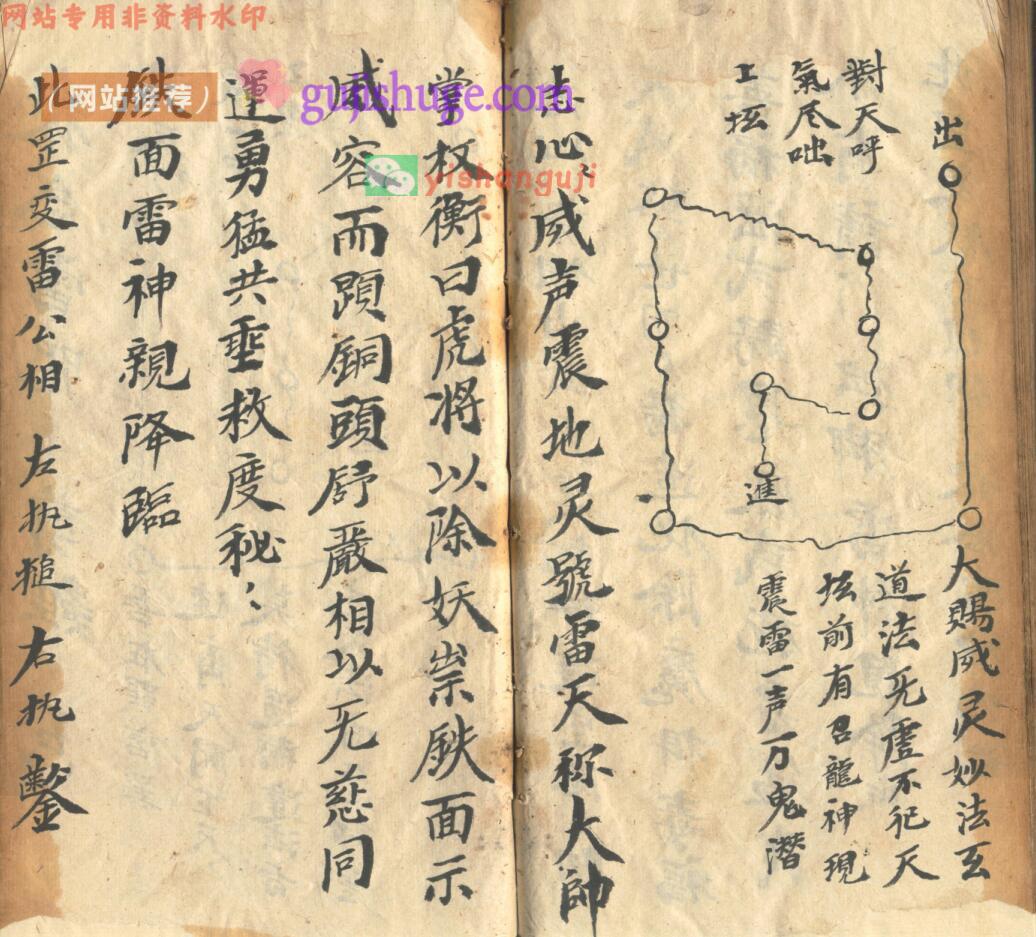 网站专用非资料水印
（网站推荐）
gujishuge.com
yishanguji
出
大賜威灵妙法玄
道法旡虚不祀天
坛前有召龍神現
震雷一声万鬼潛
對天呼
氣尽咄
工坛
進
志心威声震地灵號雷天称大帥
掌权衡曰虎将以除妖祟鉄面示
威容而顕銅頭舒嚴相以旡慈同
運勇猛共垂救度秘
鉄面雷神親降臨
此罡交雷公相 左执槌 右执鑿